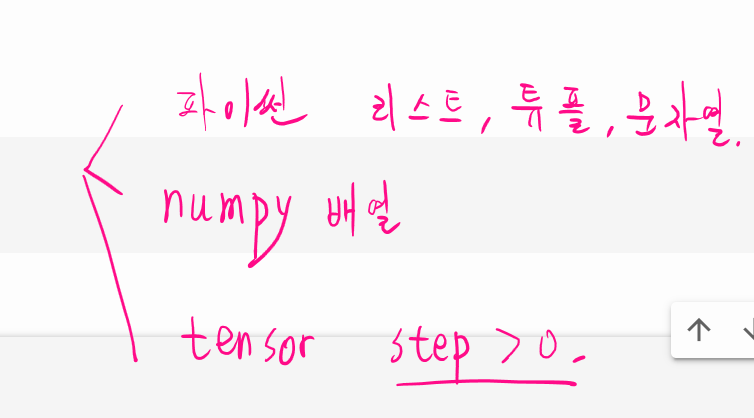 파이썬 리스트, 튜플, 문자열.
numpy 배열
tensor step > 0.